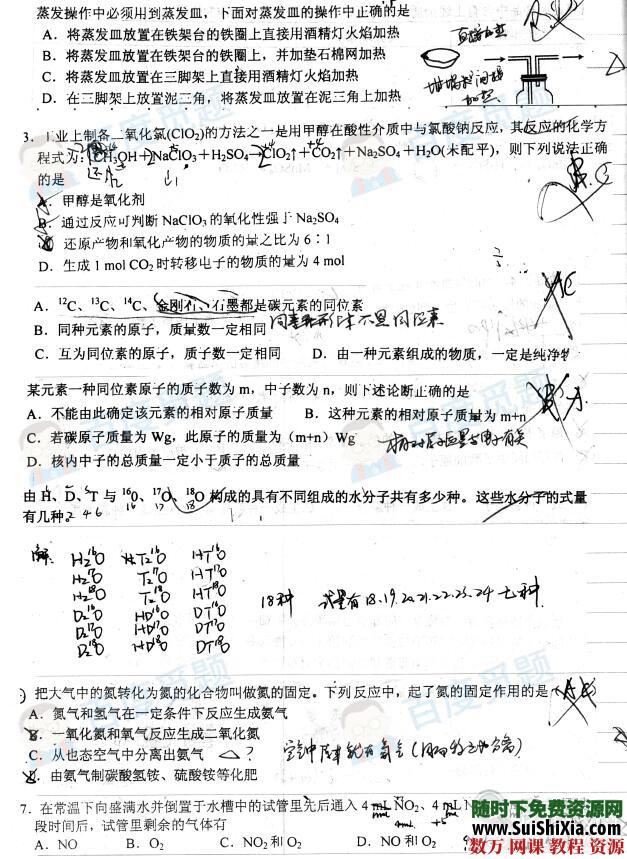 蒸发操作中必须用到蒸发皿，下面对蒸发皿的操作中正确的是
A．将蒸发皿放置在铁架台的铁圈上直接用酒精灯火焰加热
B．将蒸发皿放置在铁架台的铁圈上，并加垫石棉网加热
C．将蒸发皿放置在三脚架上直接用酒精灯火焰加热
D．在三脚架上放置泥三角，将蒸发皿放置在泥三角上加热
3．工业上制备二氧化氯(ClO₂)的方法之一是用甲醇在酸性介质中与氯酸钠反应，其反应的化学方
程式为：CH₃OH＋NaClO₃＋H₂SO₄→ClO₂↑＋CO₂↑＋Na₂SO₄＋H₂O(未配平)，则下列说法正确
的是
A．甲醇是氧化剂
B．通过反应可判断 NaClO₃ 的氧化性强于 Na₂SO₄
还原产物和氧化产物的物质的量之比为 6：1
D．生成 1 mol CO₂ 时转移电子的物质的量为 4 mol
A．¹²C、¹³C、¹⁴C、金刚石、石墨都是碳元素的同位素
B．同种元素的原子，质量数一定相同
C．互为同位素的原子，质子数一定相同 D．由一种元素组成的物质，一定是纯净物
某元素一种同位素原子的质子数为 m，中子数为 n，则下述论断正确的是
A．不能由此确定该元素的相对原子质量 B．这种元素的相对原子质量为 m+n
C．若碳原子质量为 Wg，此原子的质量为（m+n）Wg
D．核内中子的总质量一定小于质子的总质量
由 H、D、T 与 ¹⁶O、¹⁷O、¹⁸O 构成的具有不同组成的水分子共有多少种。这些水分子的式量
有几种。
解:
H₂¹⁶O T₂¹⁶O HT¹⁶O
H₂¹⁷O T₂¹⁷O HT¹⁷O
H₂¹⁸O T₂¹⁸O HT¹⁸O
D₂¹⁶O HD¹⁶O DT¹⁶O
D₂¹⁷O HD¹⁷O DT¹⁷O
D₂¹⁸O HD¹⁸O DT¹⁸O
18种 式量有18、19、20、21、22、23、24 七种
把大气中的氮转化为氮的化合物叫做氮的固定。下列反应中，起了氮的固定作用的是
A．氮气和氢气在一定条件下反应生成氨气
B．一氧化氮和氧气反应生成二氧化氮
C．从也态空气中分离出氨气
由氨气制碳酸氢铵、硫酸铵等化肥
7．在常温下向盛满水并倒置于水槽中的试管里先后通入 4 mL NO₂、4 mL
段时间后，试管里剩余的气体有
A．NO B．O₂ C．NO₂ 和 O₂ D．NO 和 O₂
百度觅题
随时下免费资源网
www.SuiShiXia.com
数万 网课 教程 资源